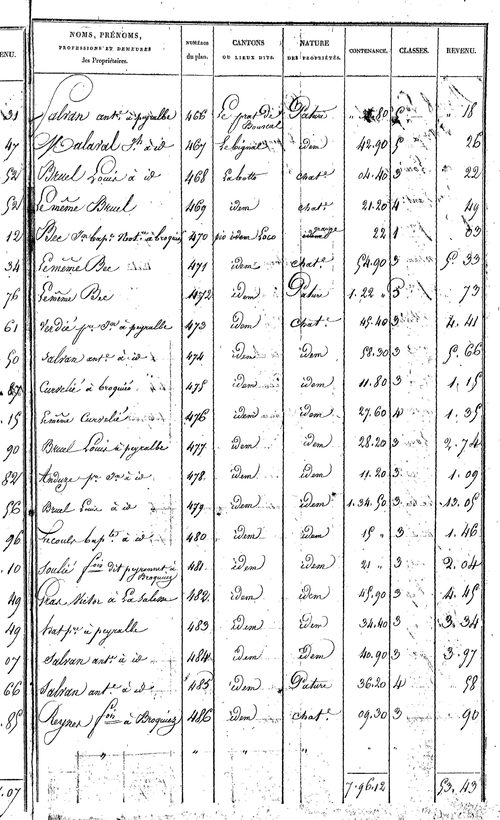 NOMS, PRÉNOMS, PROFESSIONS ET DEMEURES des Propriétaires. NUMÉROS du plan. CANTONS OU LIEUX DITS. NATURE DES PROPRIÉTÉS. CONTENANCE. CLASSES. REVENU.
31 Salvan ant.e à peyralbe 466 Le prat de Bouscal Pature 80 5 " 18
47 Malaval à id 467 Le bignal idem 42.90 5 26
52 Bruel Louis à id 468 La botte chat.e 04.40 3 22
52 Le même Bruel 469 idem chat.e 21.20 4 49
12 Bec à broquiés 470 idem Loco 22 1 03
34 Le même Bec 471 idem chat.e 54.90 3 5.33
76 Le même Bec 472 idem Pature 1.22 " 5 73
61 Verdié à peyralbe 473 idem chat.e 45.40 3 4.41
50 Salvan ant.e à id 474 idem idem 58.30 3 5.66
87 Curvelié à broquiés 475 idem idem 11.80 3 1.15
15 Le même Curvelié 476 idem idem 27.60 4 1.35
90 Bruel Louis à peyralbe 477 idem idem 28.20 3 2.74
82 à id 478 idem idem 11.20 3 1.09
56 Bruel Louis à id 479 idem idem 1.34.50 3 13.05
96 à id 480 idem idem 15 " 3 1.46
10 Soulié f.ois dit peyronnet à Broquiés 481 idem idem 21 " 3 2.04
49 Gras Victor à 482 idem idem 45.90 3 4.45
49 à peyralbe 483 idem idem 34.40 3 3.34
07 Salvan ant.e à id 484 idem idem 40.90 3 3.97
66 Salvan ant.e à id 485 idem Pature 36.20 4 58
85 Reynes f.ois à Broquiés 486 idem chat.e 09.30 3 90
" " "
.07 7.96.12 53.43